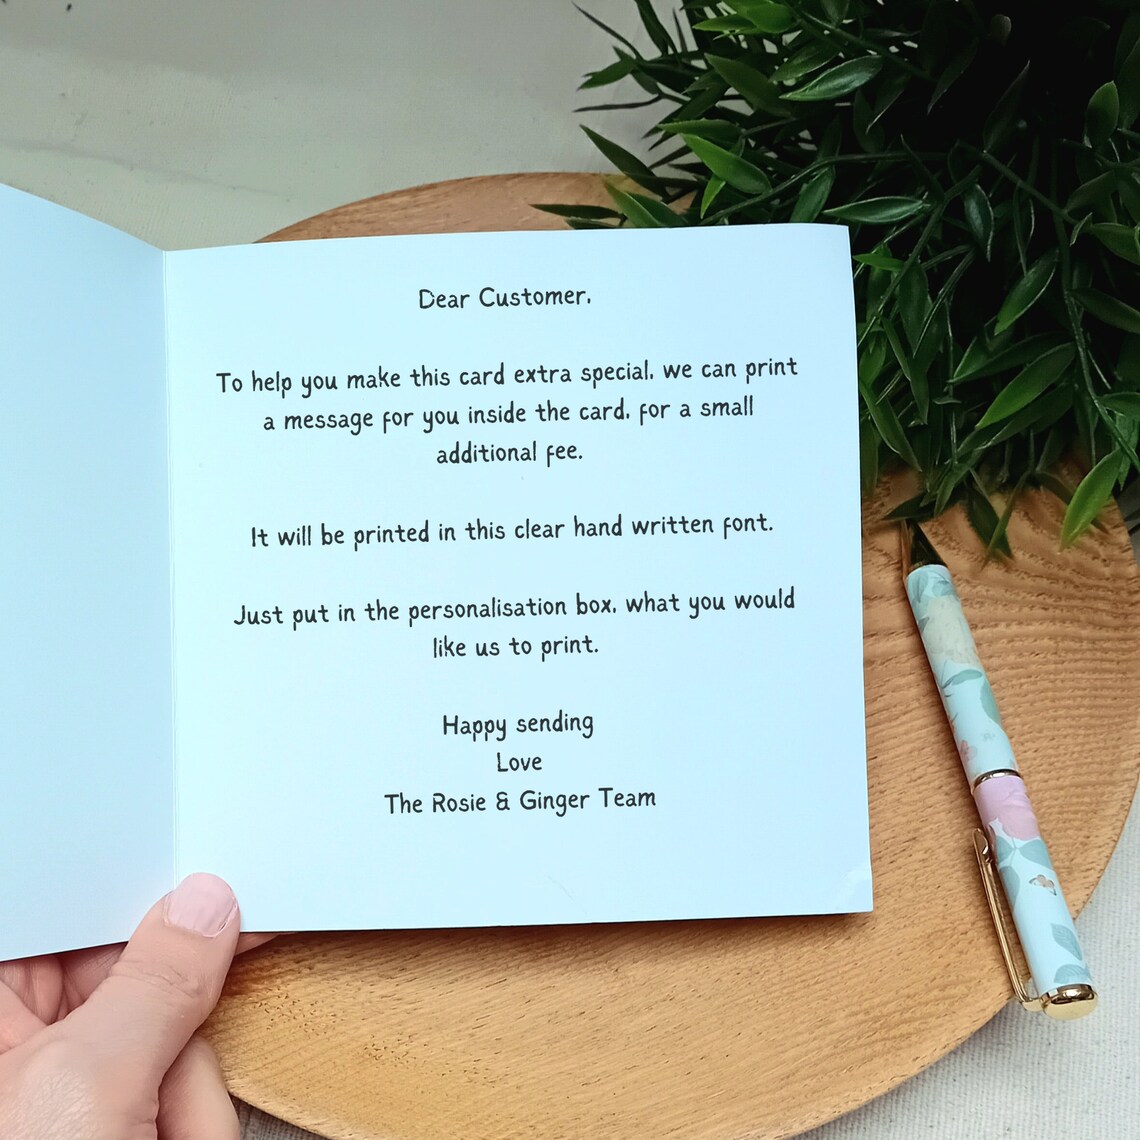 Dear Customer,
To help you make this card extra special, we can print
a message for you inside the card, for a small
additional fee.
It will be printed in this clear hand written font.
Just put in the personalisation box, what you would
like us to print.
Happy sending
Love
The Rosie & Ginger Team